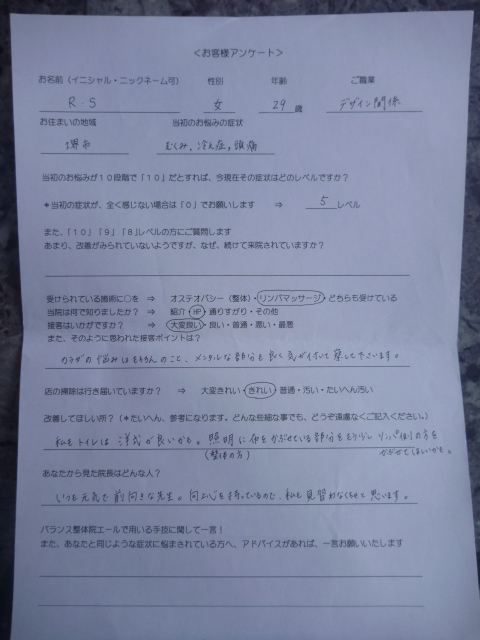 <お客様アンケート>
お名前（イニシャル・ニックネーム可） 性別 年齢 ご職業
R・S 女 29歳 デザイン関係
お住まいの地域 当初のお悩みの症状
堺市 むくみ、冷え症、頭痛
当初のお悩みが10段階で「10」だとすれば、今現在その症状はどのレベルですか？
＊当初の症状が、全く感じない場合は「0」でお願いします ⇒ 5 レベル
また、「10」「9」「8」レベルの方にご質問します
あまり、改善がみられていないようですが、なぜ、続けて来院されていますか？
受けられている施術に○を ⇒ オステオパシー（整体）・リンパマッサージ・どちらも受けている
当院は何で知りましたか？ ⇒ 紹介・HP・通りすがり・その他
接客はいかがですか？ ⇒ 大変良い・良い・普通・悪い・最悪
また、そのように思われた接客ポイントは？
カラダの悩みはもちろんのこと、メンタルな部分も良く気が付いて察して下さいます。
店の掃除は行き届いていますか？ ⇒ 大変きれい・きれい・普通・汚い・たいへん汚い
改善してほしい所？（＊たいへん、参考になります。どんな些細な事でも、どうぞ遠慮なくご記入ください。）
私もトイレは洋式が良いかも。照明に布をかぶせている部分をもう少しリンパ側の方を
(整体の方) かぶせてほしいかも。
あなたから見た院長はどんな人？
いつも元気で前向きな先生。向上心を持っているので、私も見習わなくちゃと思います。
バランス整体院エールで用いる手技に関して一言！
また、あなたと同じような症状に悩まされている方へ、アドバイスがあれば、一言お願いいたします